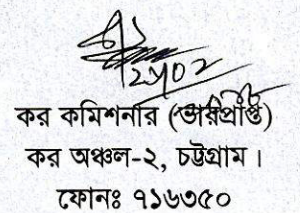 কর কমিশনার (ভারপ্রাপ্ত)
কর অঞ্চল-২, চট্টগ্রাম।
ফোনঃ ৭১৬৩৫০